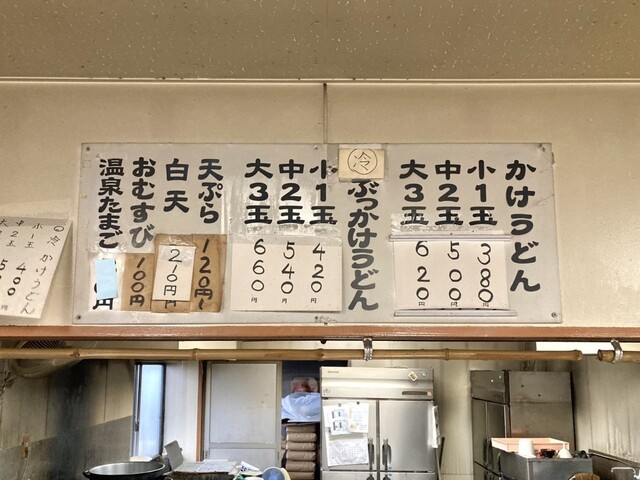 かけうどん
小1玉
380
中2玉
500円
大3玉
620円
冷
ぶっかけうどん
小1玉
420円
中2玉
540円
大3玉
660円
天ぷら
120円〜
白天
210円
おむすび
100円
温泉たまご
円
冷かけうどん
小1玉
中2玉